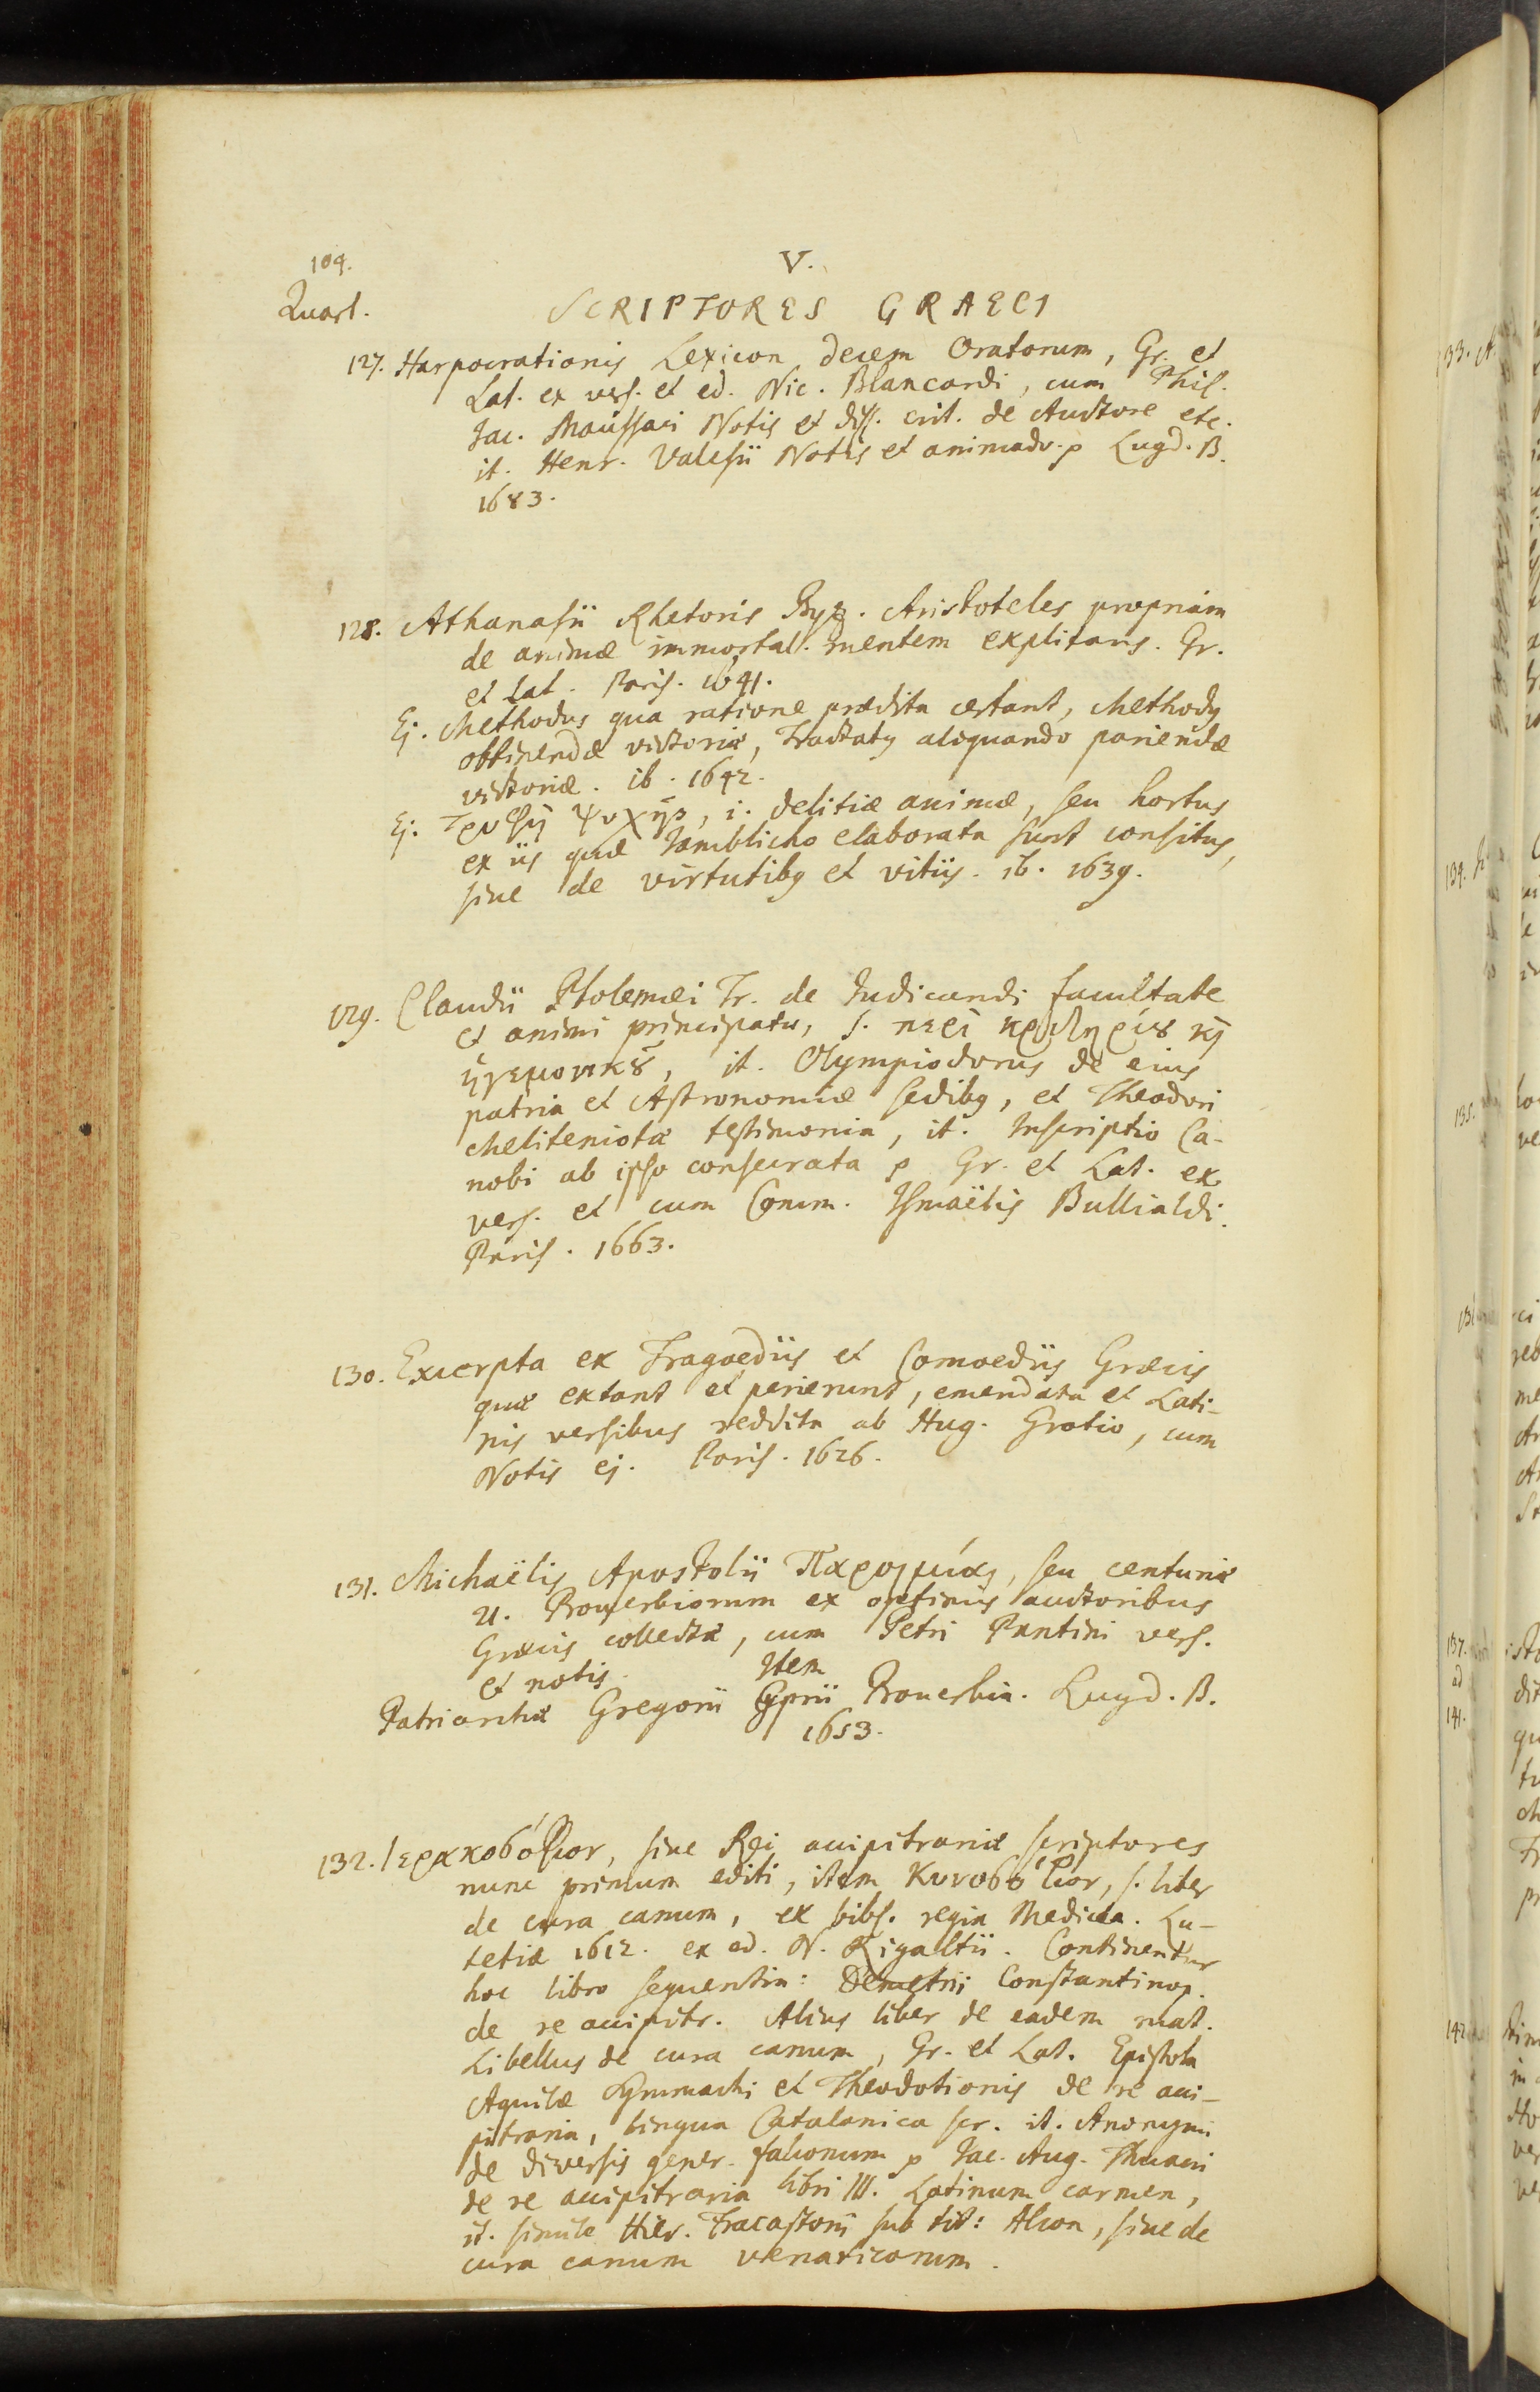 104.
V.
Quart.
SCRIPTORES GRAECI
127. Harpocrationis Lexicon decem Oratorum, Gr. et
Lat. ex vers. et ed. Nic. Blancardi, cum Phil.
Jac. Maussaci Notis et diss. crit. de Auctore etc.
it. Henr. Valesii Notis et animadv. p Lugd. B.
1683.
128. Athanasii Rhetoris Byz. Aristoteles propriam
de animæ immortal. mentem explicans. Gr.
et Lat. Paris. 1641.
Ej. Methodus qua ratione prædita certant, Methodus
obtinendæ victoriæ, Tractatus aliquando pariendæ
victoriæ. ib. 1642.
Ej. Τρυφὴ ψυχῆς, i. delitiæ animæ, seu hortus
ex iis quæ Jamblicho elaborata sunt consitus,
sive de virtutibus et vitiis. ib. 1639.
129. Claudii Ptolemæi Tr. de Judicandi facultate
et animi principatu, s. περὶ κριτηρίου καὶ
ἡγεμονικοῦ, it. Olympiodorus de eius
patria et Astronomiæ sedibus, et Theodori
Meliteniotæ testimonia, it. Inscriptio Ca-
nobi ab ipso consecrata p Gr. et Lat. ex
vers. et cum Comm. Ismaëlis Bullialdi.
Paris. 1663.
130. Excerpta ex Tragoediis et Comoediis Græcis
quæ extant et perierunt, emendata et Lati-
nis versibus reddita ab Hug. Grotio, cum
Notis ej. Paris. 1626.
131. Michaëlis Apostolii Παροιμίαι, seu centuriæ
21. Proverbiorum ex optimis auctoribus
Græcis collectæ, cum Petri Pantini vers.
et notis. Item
Patriarchæ Gregorii Cyprii Proverbia. Lugd. B.
1653.
132. Ἱερακοσόφιον, sive Rei accipitrariæ scriptores
nunc primum editi, item Κυνοσόφιον, s. liber
de cura canum, ex bibl. regia Medicea. Lu-
tetiæ 1612. ex ed. N. Rigaltii. Continentur
hoc libro sequentia: Demetrii Constantinop.
de re accipitr. Alius liber de eadem mat.
Libellus de cura canum, Gr. et Lat. Epistola
Aquilæ Symmachi et Theodotionis de re acci-
pitraria, lingua Catalanica scr. it. Anonymi
de diversis gener. falconum p Jac. Aug. Thuani
de re accipitraria libri III. Latinum carmen,
it. simile Hier. Fracastorii sub tit: Alcon, sive de
cura canum venaticorum.